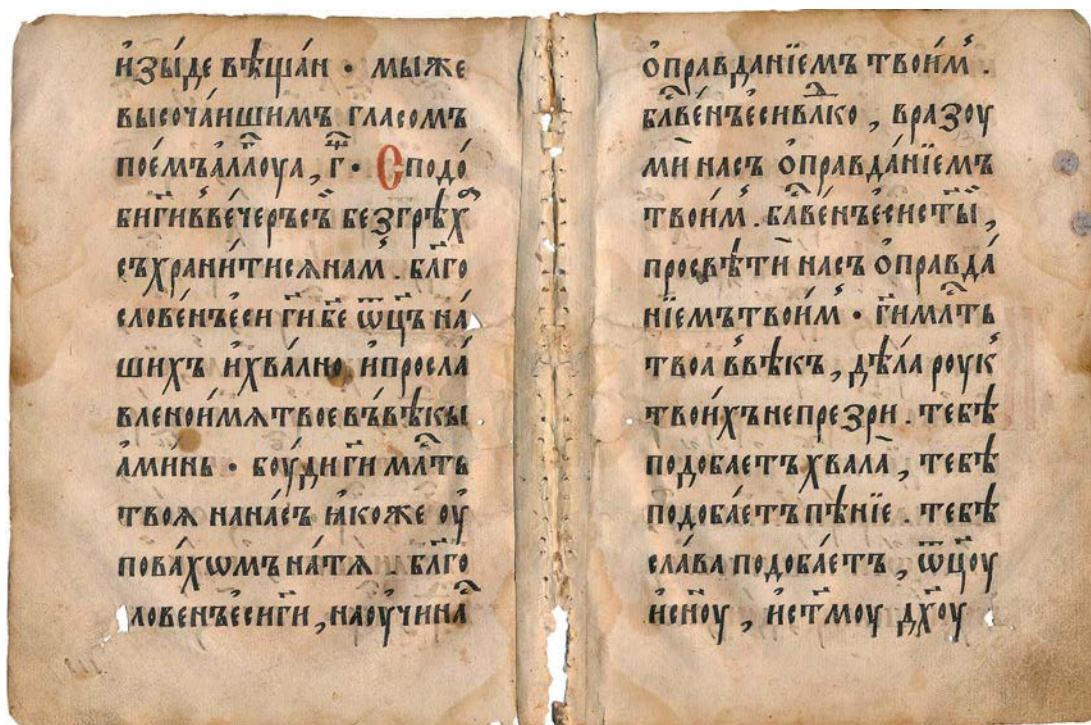 и҆зы́де вѣща́н · мы́же
высоча́ишимъ гла́сомъ
пое́мъ а҆ллоуа , г҃ · Сподо́
би г҃и в ве́черъ съ̑ без грѣх
съхрани́тися на́м . бл҃го
слове́нъ е҆си г҃и б҃е ѡ҆ц҃ъ на́
шихъ и҆ хва́лно и҆ просла́
влено и҆мя твое въ вѣкы
а҆ми́нь · боу́ди г҃и мл҃ть
твоя на на́съ ꙗ҆коже оу
пова́хѡмъ на́ тя . бл҃го
ловенъ е҆си г҃и , наоу́чи на
о҆правда́нїемъ твои́м .
бл҃ве́нъ е҆си вл҃ко , вразоу
ми́ насъ о҆правда́нїемъ
твои́м . бл҃ве́нъ е҆си ст҃ы ,
просвѣти́ насъ о҆правда́
нїемъ твои́м · г҃и мл҃ть
твоа в вѣкъ , дѣ́ла роук
твои́хъ не презри . тебѣ
подоба́етъ хвала̀ , тебѣ
подоба́етъ пѣ́нїе . тебѣ
сла́ва подоба́етъ , ѿц҃оу
и҆ сн҃оу , и҆ ст҃моу дх҃оу